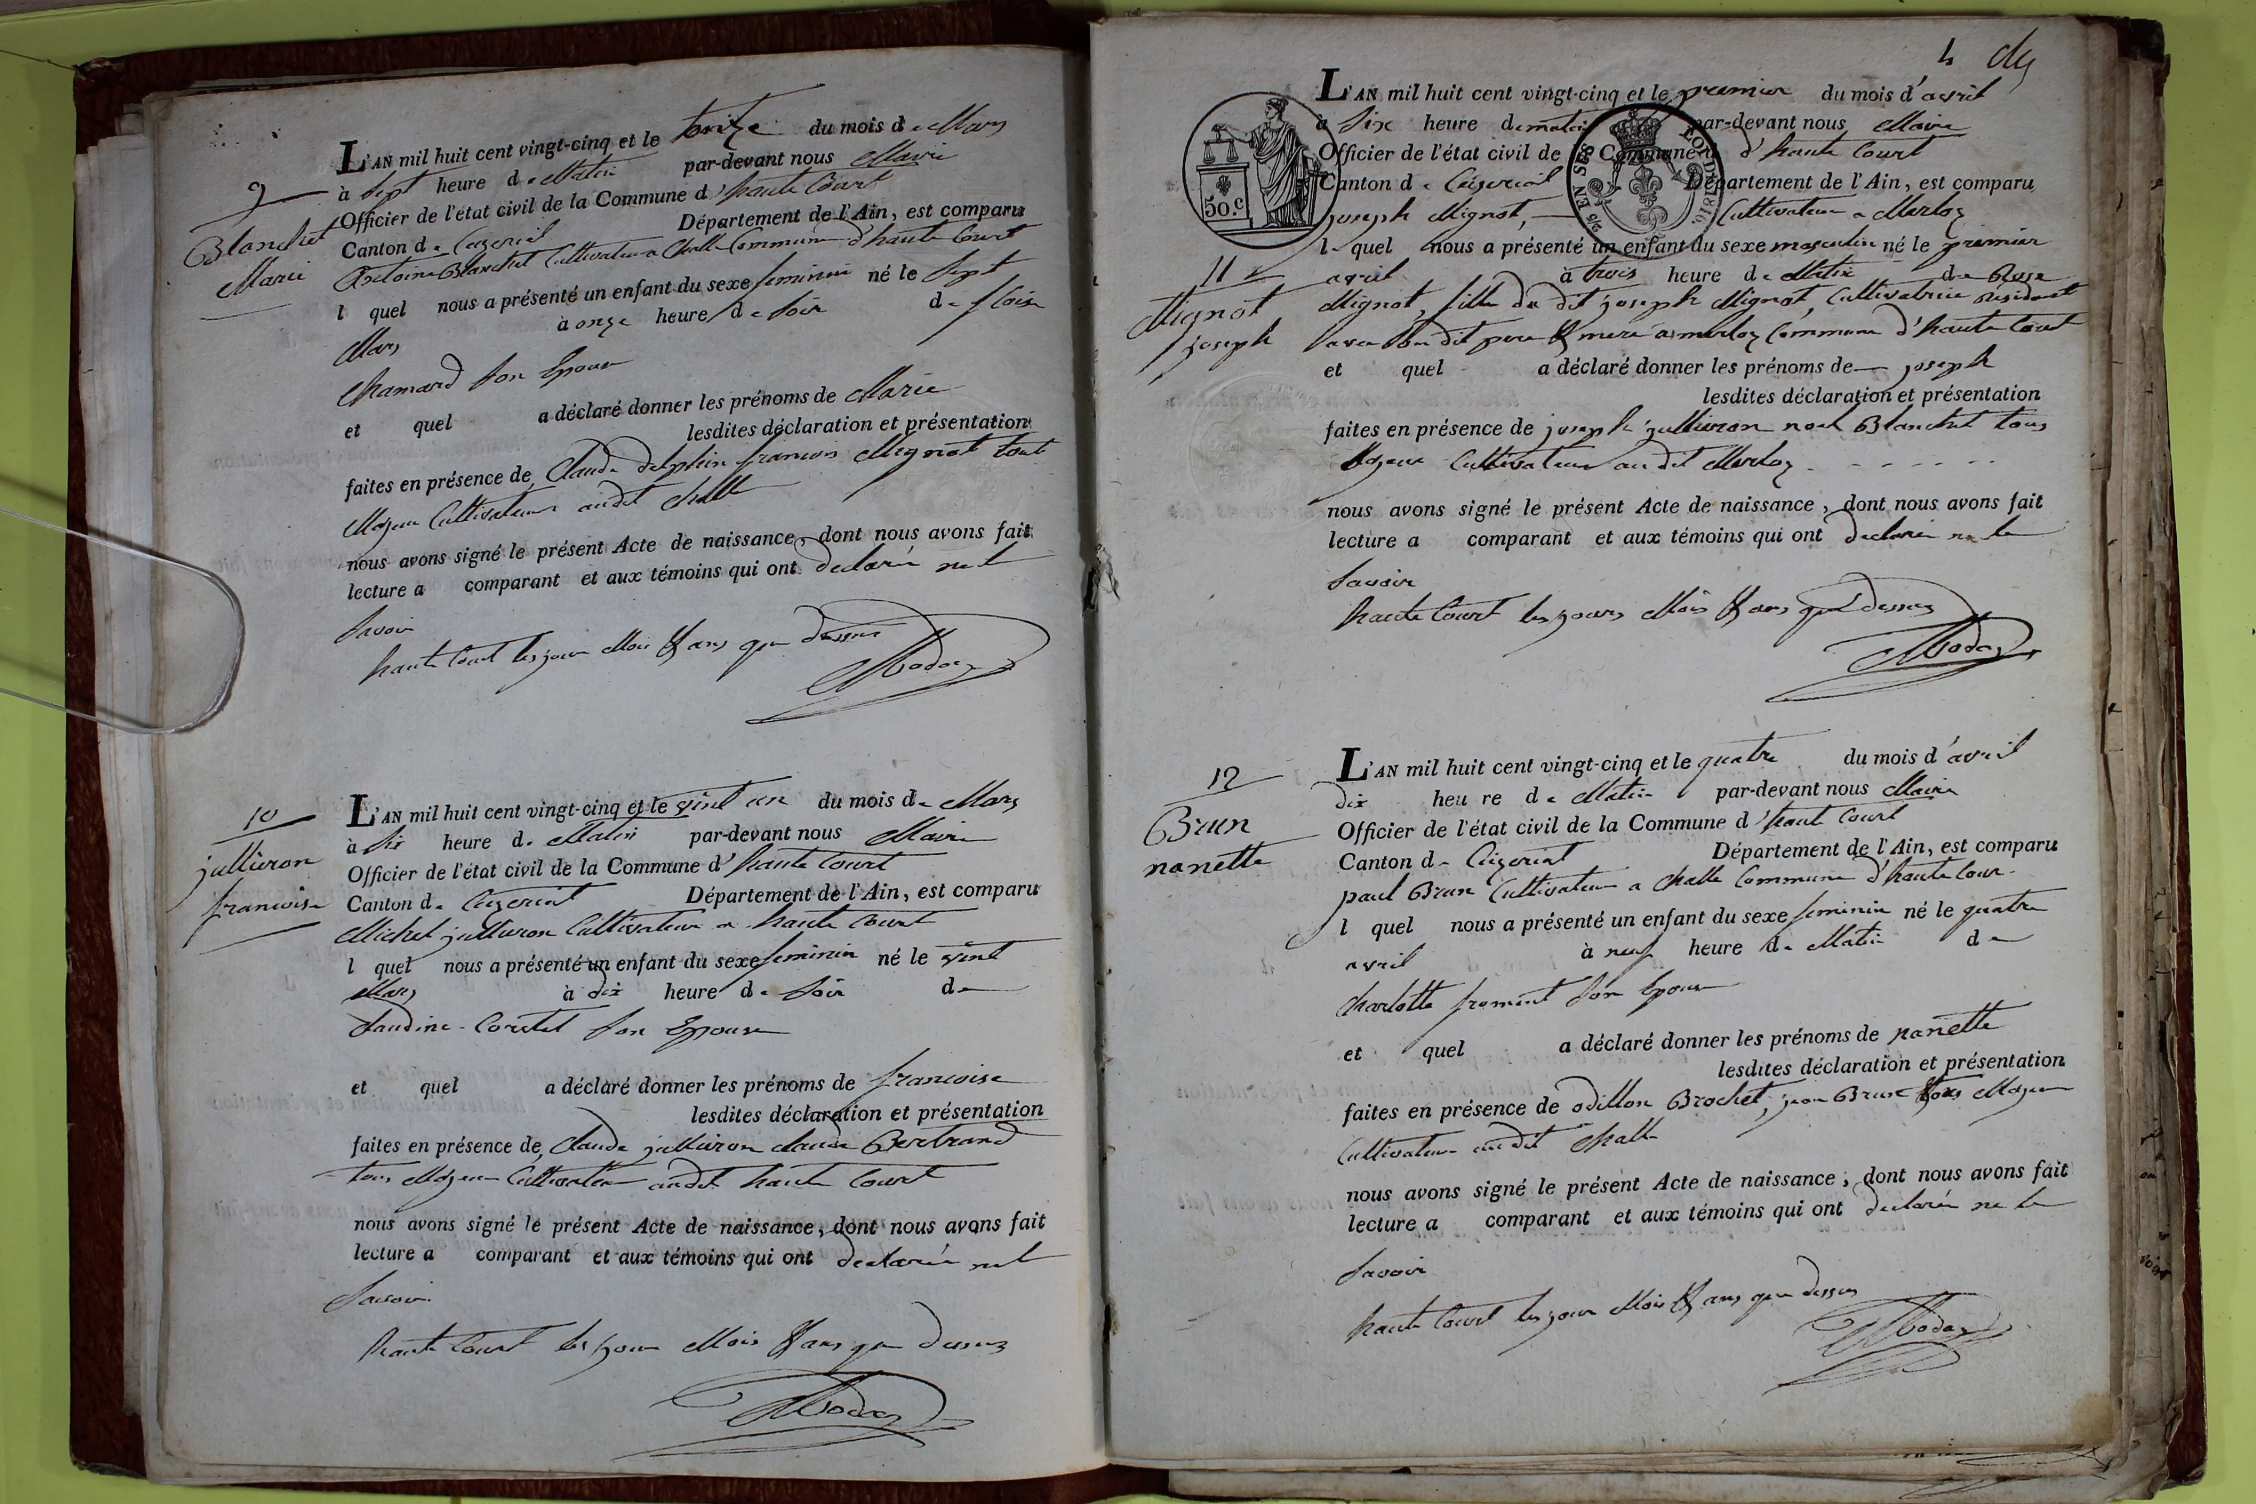 9
Blanchet
Marie
L'AN mil huit cent vingt-cinq et le du mois de Mars
à Sept heure de Matin par-devant nous Maire
Officier de l'état civil de la Commune d'haute Court
Canton de Ceizeriat Département de l'Ain, est comparu
Antoine Blanchet Cultivateur a Challe Commune d'haute Court
l quel nous a présenté un enfant du sexe feminin né le Sept
Mars à onze heure de Soir de
Chamard Son Epouse
et quel a déclaré donner les prénoms de Marie
lesdites déclaration et présentation
faites en présence de Claude delphin francois Mignot tout
Majeur Cultivateur audit Challe
nous avons signé le présent Acte de naissance, dont nous avons fait
lecture a comparant et aux témoins qui ont declarée ne le
Savoir
haute Court les jour Mois & ans que dessus
10
jullieron
francoise
L'AN mil huit cent vingt-cinq et le vint un du mois de Mars
à Six heure de Matin par-devant nous Maire
Officier de l'état civil de la Commune d'haute Court
Canton de Ceizeriat Département de l'Ain, est comparu
Michel jullieron Cultivateur a haute Court
l quel nous a présenté un enfant du sexe feminin né le vint
Mars à dix heure de Soir de
Claudine Son Epouse
et quel a déclaré donner les prénoms de francoise
lesdites déclaration et présentation
faites en présence de Claude jullieron claude Bertrand
tous Majeur Cultivateur audit haute Court
nous avons signé le présent Acte de naissance, dont nous avons fait
lecture a comparant et aux témoins qui ont declarée ne le
Savoir
haute Court les jour Mois & ans que dessus
4
50.c
11
Mignot
joseph
L'AN mil huit cent vingt-cinq et le premier du mois d'avril
à Six heure de matin par-devant nous Maire
Officier de l'état civil de la Commune d'haute Court
Canton de Ceizeriat Département de l'Ain, est comparu
joseph Mignot, Cultivateur a Merloz
le quel nous a présenté un enfant du sexe masculin né le premier
avril à trois heure de Matin de Rose
Mignot, fille du dit joseph Mignot, Cultivatrice residant
avec Son dit pere & mere a merloz Commune d'haute Court
et quel a déclaré donner les prénoms de joseph
lesdites déclaration et présentation
faites en présence de joseph jullieron noel Blanchet tous
Majeur Cultivateur au dit Merloz
nous avons signé le présent Acte de naissance, dont nous avons fait
lecture a comparant et aux témoins qui ont declarée ne le
Savoir
haute Court les jours Mois & ans que dessus
12
Brun
nanette
L'AN mil huit cent vingt-cinq et le quatre du mois d'avril
dix heure de Matin par-devant nous Maire
Officier de l'état civil de la Commune d'haut Court
Canton de Ceizeriat Département de l'Ain, est comparu
paul Brun Cultivateur a Challe Commune d'haute Cour
l quel nous a présenté un enfant du sexe feminin né le quatre
avril à neuf heure de Matin de
Charlotte froment Son Epouse
et quel a déclaré donner les prénoms de nanette
lesdites déclaration et présentation
faites en présence de odillon Brochet, jean Brun tous Majeur
Cultivateur audit Challe
nous avons signé le présent Acte de naissance, dont nous avons fait
lecture a comparant et aux témoins qui ont declarée ne le
Savoir
haute Court les jour Mois & ans que dessus